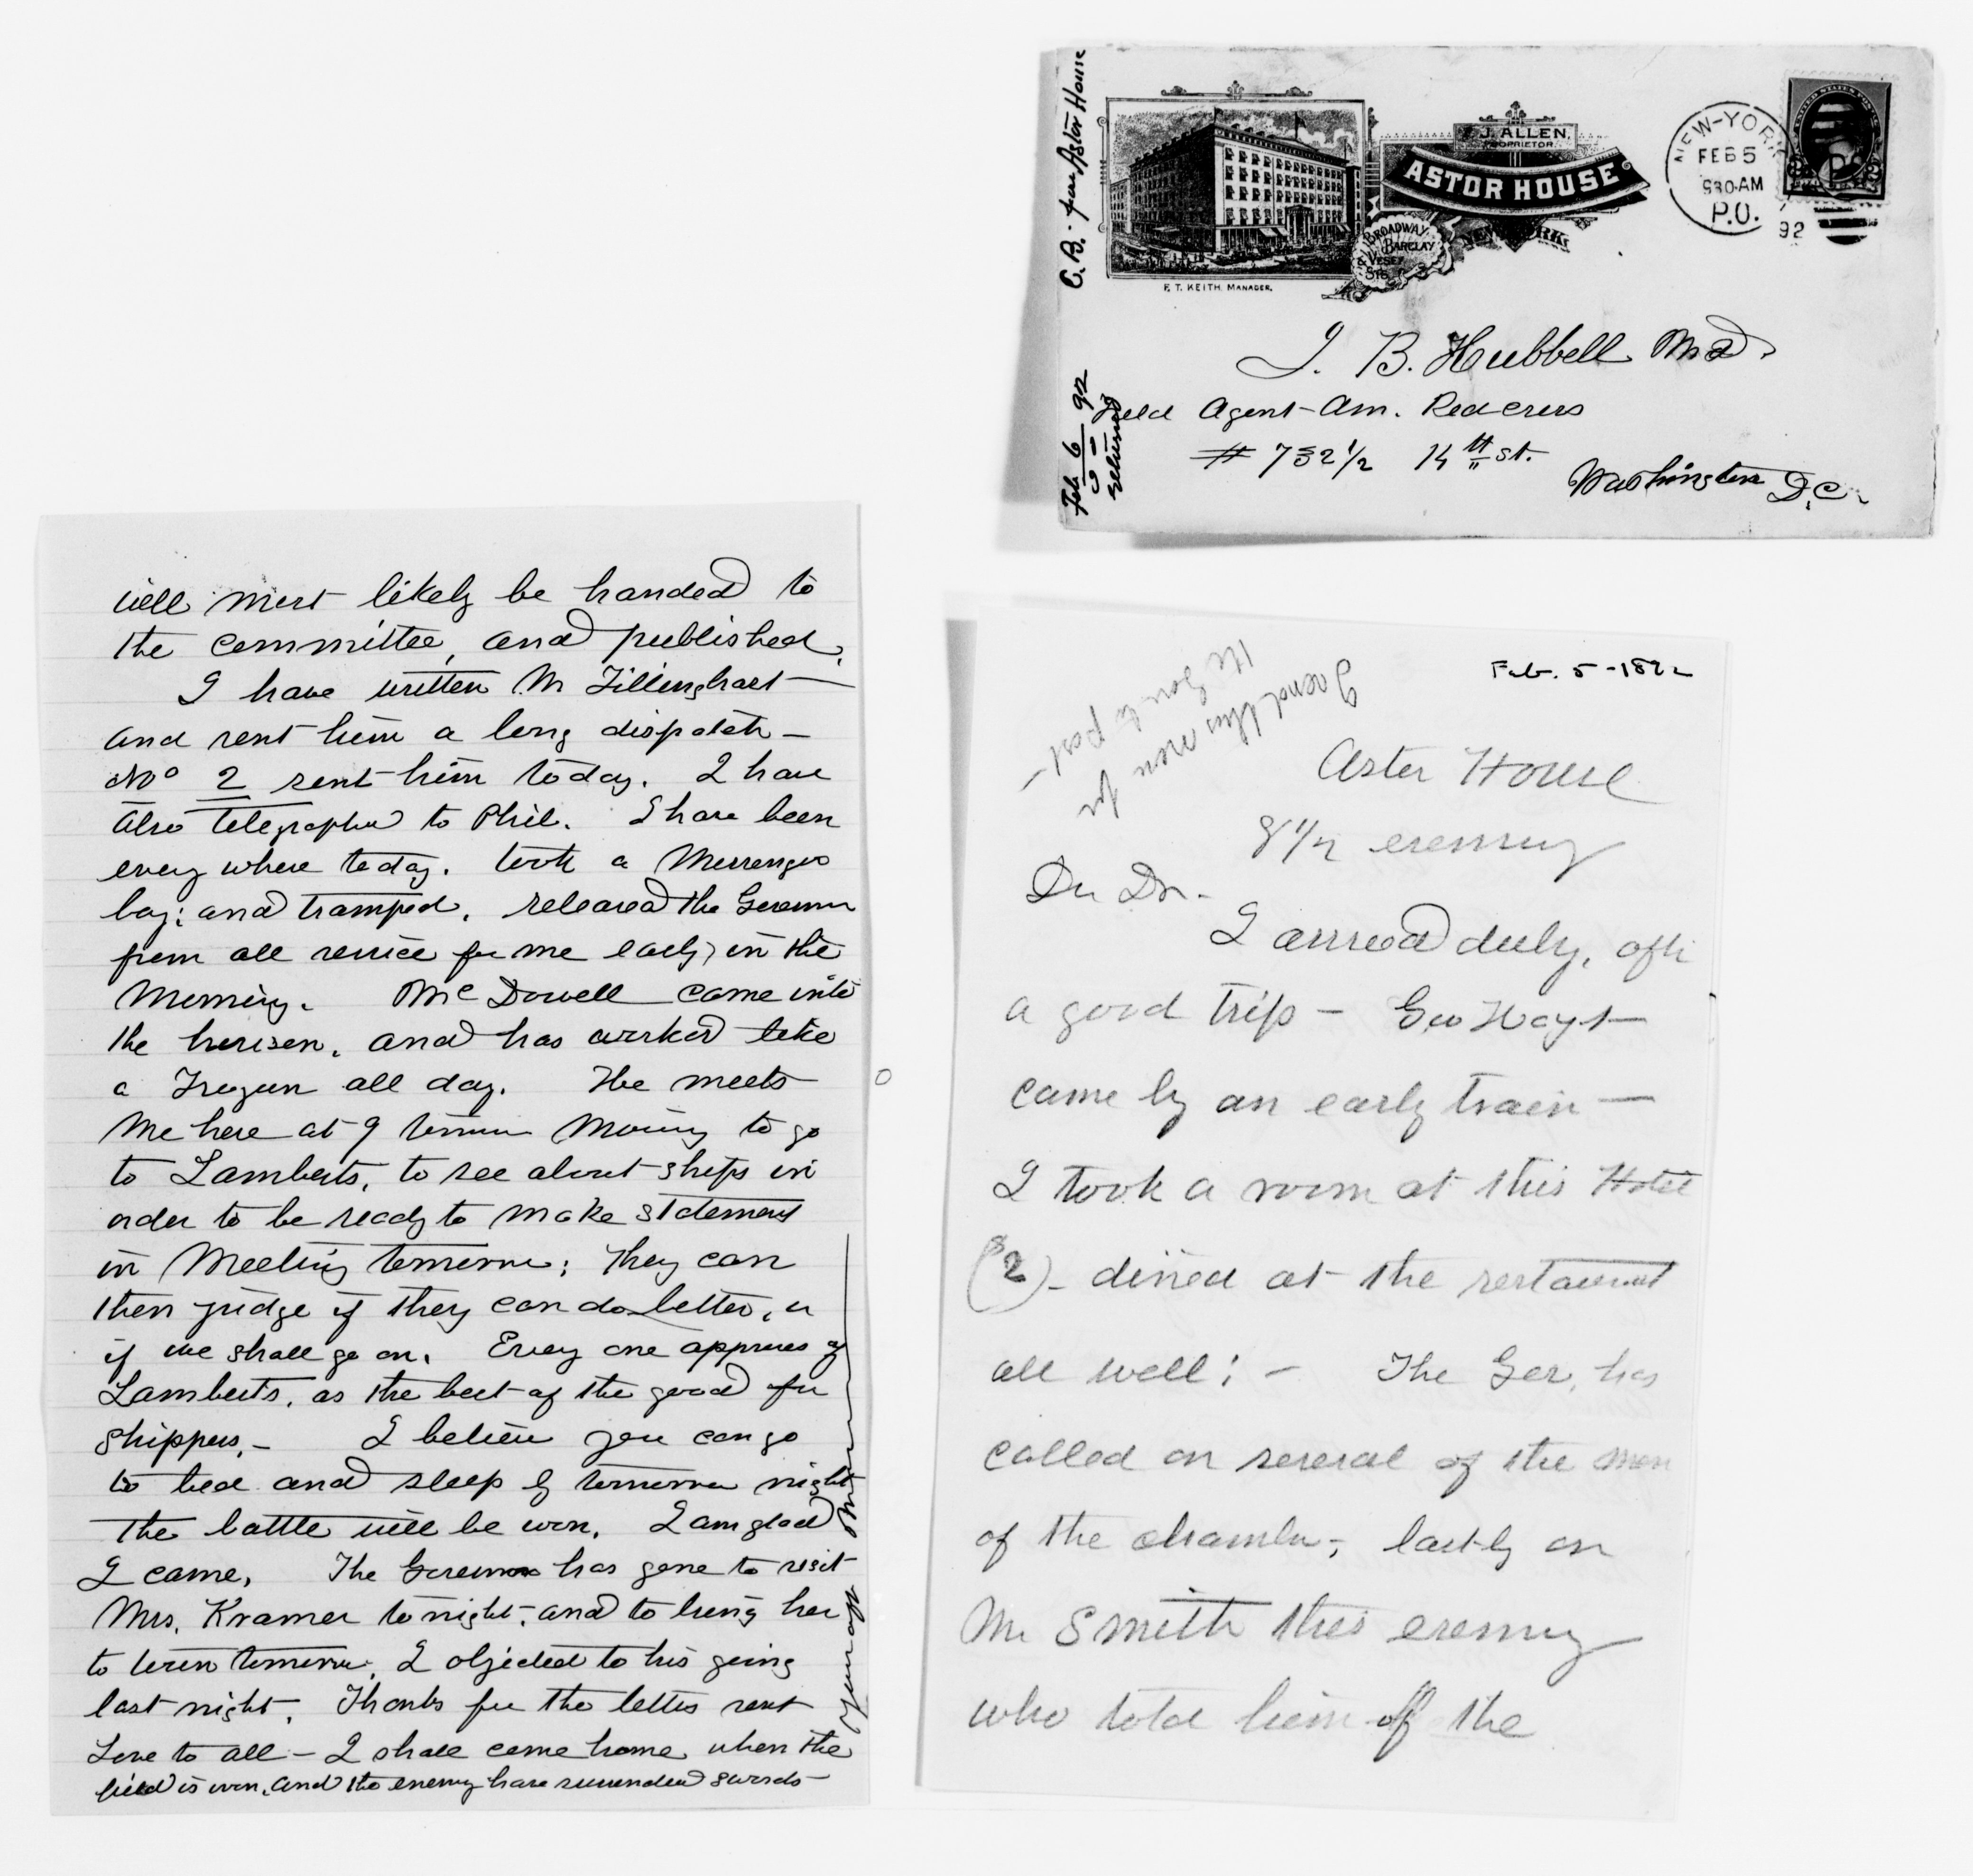 will most likely be handed to
the committee, and published.
I have written Mr Tillinghast —
and sent him a long dispatch —
No 2 sent him today. I have
also telegraphed to Phil. I have been
every where today. took a Messenger
boy; and tramped. released the Governor
from all service for me early, in the
Morning. McDowell came into
the horison, and has worked like
a Trojan all day. He meets
me here at 9 tomorrow morning to go
to Lamberts, to see about ships in
order to be ready to make statement
in Meeting tomorrow; They can
then judge if they can do better, or
if we shall go on. Every one approves of
Lamberts, as the best of the good for
shippers. — I believe you can go
to bed and sleep by tomorrow night
The battle will be won. I am glad
I came. The Governor has gone to visit
Mrs. Kramer tonight, and to bring her
to town tomorrow. I objected to his going
last night. Thanks for the letters sent
Love to all — I shall come home when the
field is won, and the enemy have surrendered swords —
C. B. from Astor House
Feb 6 92
J. ALLEN,
PROPRIETOR
ASTOR HOUSE
BROADWAY,
BARCLAY
& VESEY
STS.
NEW YORK.
F. T. KEITH, MANAGER.
NEW-YORK
FEB 5
930 AM
P.O.
92
J. B. Hubbell Md.
Field Agent - Am. Red cross
# 732 1/2 14th st.
Washington D.C.
Feb. 5 - 1892
I send this now for
the Gov to post —
Astor House
8 1/2 evening
Dr Dr. -
I arrived duly, aft
a good trip — Geo Hoyt —
came by an early train —
I took a room at this Hotel
($2) - dined at the restaurant
all well; — The Gov. has
called on several of the men
of the chamber; lastly on
Mr Smith this evening
who told him off the